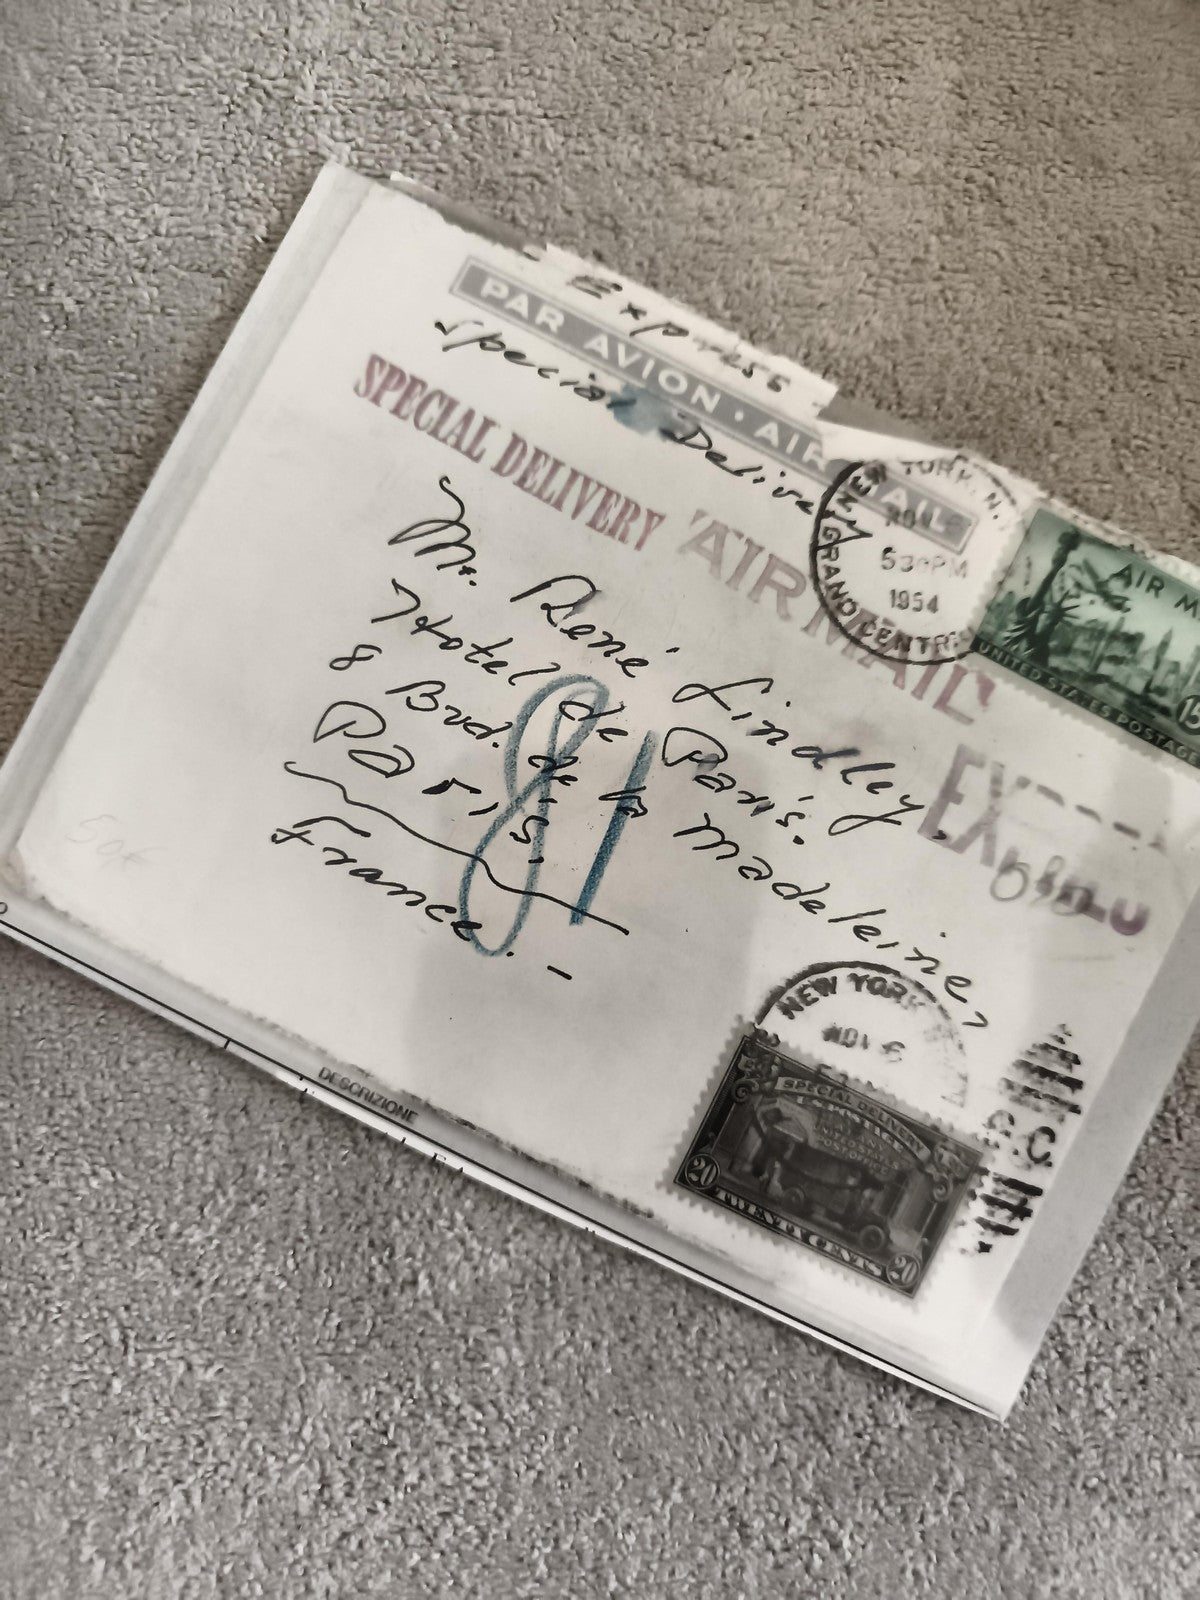 Express
PAR AVION · AIR MAIL
Special Delivery
SPECIAL DELIVERY
AIR MAIL
NEW YORK, N.Y.
530PM
1954
GRAND CENTRAL
AIR M
UNITED STATES POSTAGE
15
Mr. René Lindley,
Hotel de Paris.
8 Bvd. de la Madeleine,
Paris.
France.
81
50€
NEW YORK
NOV 6
G.C.
SPECIAL DELIVERY
UNITED STATES
POST OFFICE
20
TWENTY CENTS
20
DESCRIZIONE